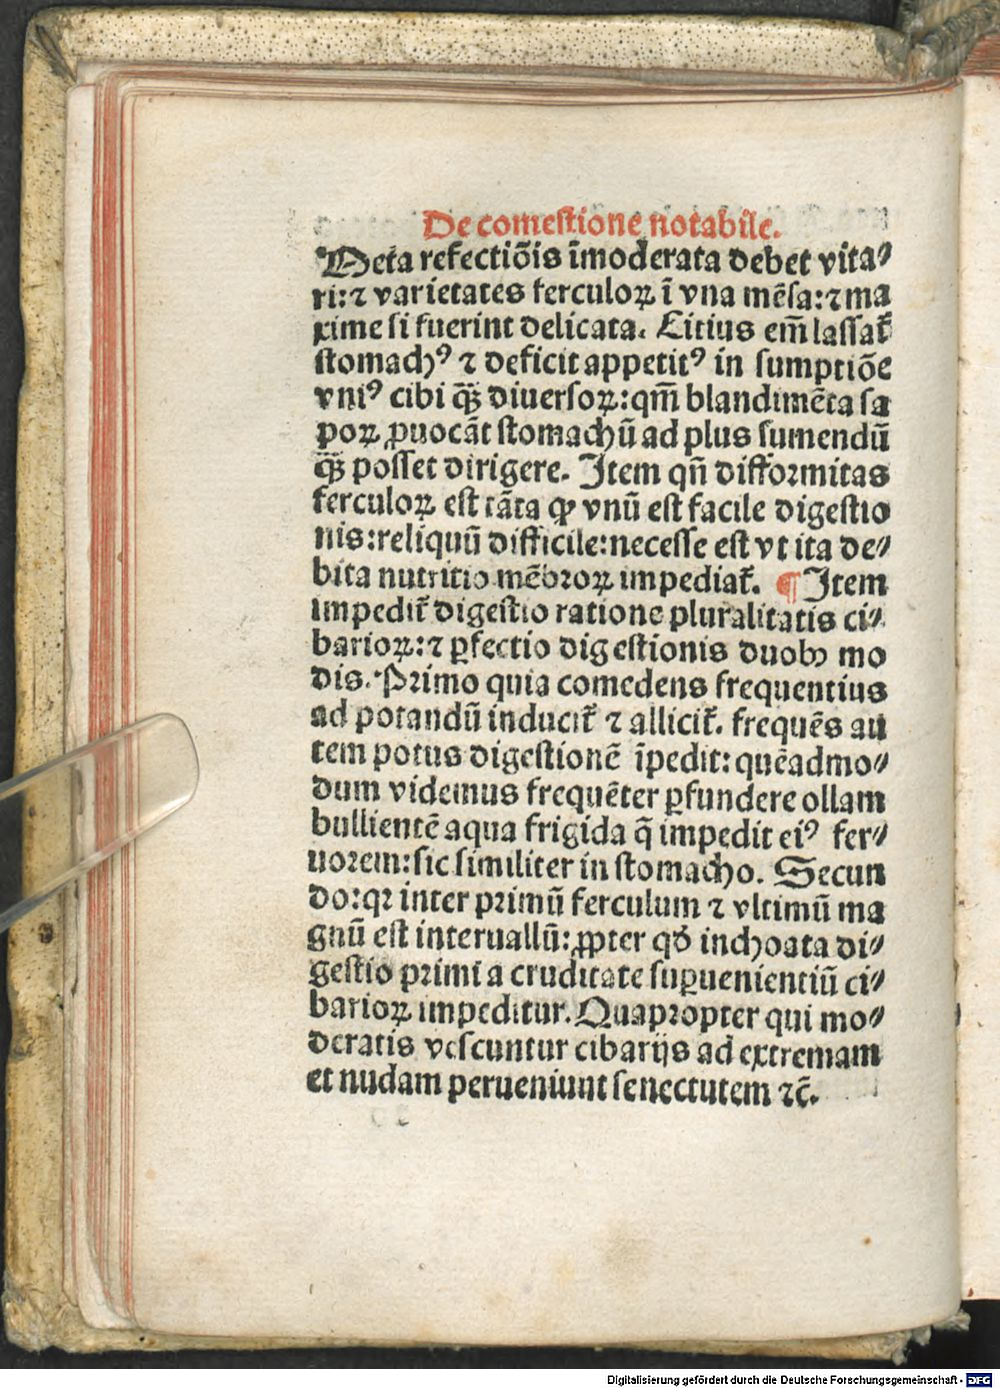 De comestione notabile.
Meta refectiõis ĩmoderata debet vita⸗
ri: ⁊ varietates ferculoꝝ ĩ vna mẽsa: ⁊ ma
xime si fuerint delicata. Citius em̃ lassat᷑
stomachꝰ ⁊ deficit appetitꝰ in sumptiõe
vniꝰ cibi q̃ꝫ diuersoꝝ: qm̃ blandimẽta sa
poꝝ ꝓuocãt stomachũ ad plus sumendũ
q̃ꝫ posset dirigere. Item qñ difformitas
ferculoꝝ est tãta ꝙ vnũ est facile digestio
nis: reliquũ difficile: necesse est vt ita de⸗
bita nutritio mẽbꝛoꝝ impediat᷑. ¶ Item
impedit᷑ digestio ratione pluralitatis ci⸗
barioꝝ: ⁊ ꝑfectio digestionis duobꝰ mo
dis. Pꝛimo quia comedens frequentius
ad potandũ inducit᷑ ⁊ allicit᷑. frequẽs au
tem potus digestionẽ ĩpedit: quẽadmo⸗
dum videmus frequẽter ꝑfundere ollam
bullientẽ aqua frigida q̃ impedit eiꝰ fer⸗
uorem: sic similiter in stomacho. Secun
do: qꝛ inter pꝛimũ ferculum ⁊ vltimũ ma
gnũ est interuallũ: ꝓpter qđ inchoata di⸗
gestio pꝛimi a cruditate suꝑuenientiũ ci⸗
barioꝝ impeditur. Quapꝛopter qui mo⸗
deratis vescuntur cibarijs ad extremam
et nudam perueniunt senectutem ⁊c̃.
Digitalisierung gefördert durch die Deutsche Forschungsgemeinschaft - DFG